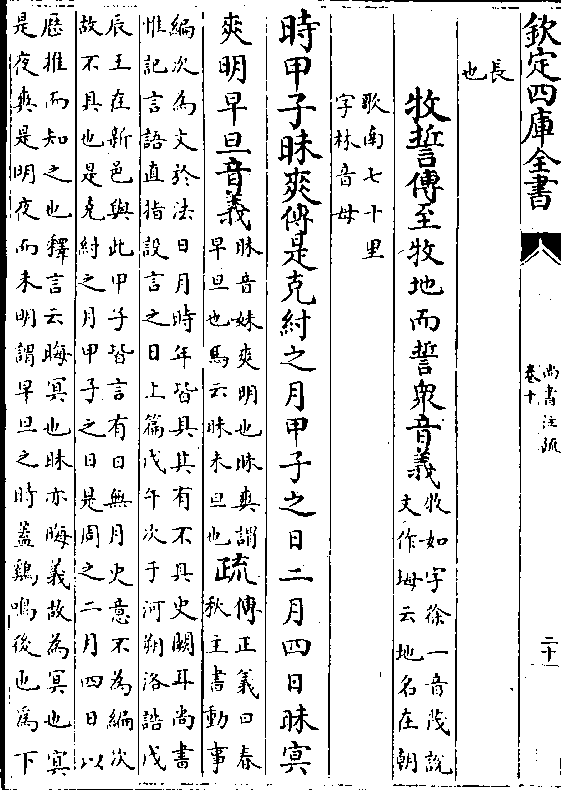 欽定四庫全書
尚書注疏
卷十
二十
長
也
牧誓傳至牧地而誓衆音義
牧如字徐一音茂說
文作坶云地名在朝
歌南七十里
字林音母
時甲子昧爽傳是克紂之月甲子之日二月四日昧㝠
爽明早旦音義
昧音妹爽明也昧爽謂
早旦也馬云昧未旦也
疏
傳正義曰春
秋主書動事
編次為文於法日月時年皆具其有不具史闕耳尚書
惟記言語直指設言之日上篇戊午次于河朔洛誥戊
辰王在新邑與此甲子皆言有日無月史意不為編次
故不具也是克紂之月甲子之日是周之二月四日以
厯推而知之也釋言云晦㝠也昧亦晦義故為㝠也㝠
是夜爽是明夜而未明謂早旦之時蓋鷄鳴後也為下